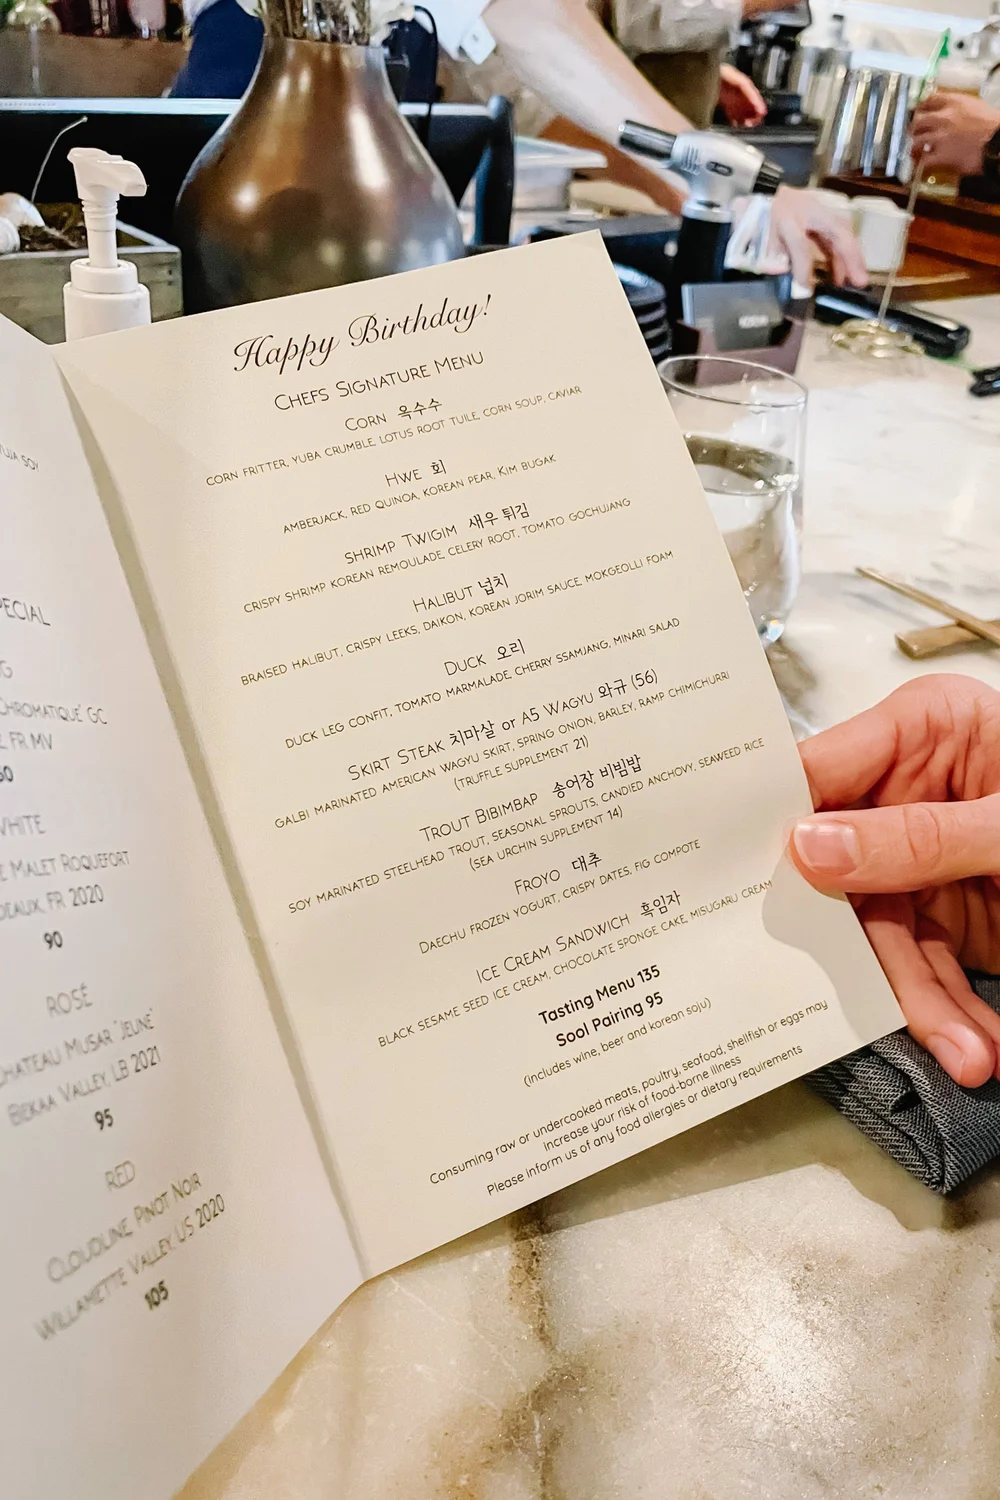 SOY
PECIAL
G
CHROMATIQUE' GC
FR MV
WHITE
MALET ROQUEFORT
FR 2020
90
ROSÉ
CHATEAU MUSAR "JEUNE"
BEKAA VALLEY, LB 2021
95
RED
CLOUDLINE, PINOT NOIR
WILLAMETTE VALLEY, US 2020
105
Happy Birthday!
CHEFS SIGNATURE MENU
CORN 옥수수
CORN FRITTER, YUBA CRUMBLE, LOTUS ROOT TUILE, CORN SOUP, CAVIAR
HWE 회
AMBERJACK, RED QUINOA, KOREAN PEAR, KIM BUGAK
SHRIMP TWIGIM 새우 튀김
CRISPY SHRIMP KOREAN REMOULADE, CELERY ROOT, TOMATO GOCHUJANG
HALIBUT 넙치
BRAISED HALIBUT, CRISPY LEEKS, DAIKON, KOREAN JORIM SAUCE, MOKGEOLLI FOAM
DUCK 오리
DUCK LEG CONFIT, TOMATO MARMALADE, CHERRY SSAMJANG, MINARI SALAD
SKIRT STEAK 치마살 or A5 WAGYU 와규 (56)
GALBI MARINATED AMERICAN WAGYU SKIRT, SPRING ONION, BARLEY, RAMP CHIMICHURRI
(TRUFFLE SUPPLEMENT 21)
TROUT BIBIMBAP 송어장 비빔밥
SOY MARINATED STEELHEAD TROUT, SEASONAL SPROUTS, CANDIED ANCHOVY, SEAWEED RICE
(SEA URCHIN SUPPLEMENT 14)
FROYO 대추
DAECHU FROZEN YOGURT, CRISPY DATES, FIG COMPOTE
ICE CREAM SANDWICH 흑임자
BLACK SESAME SEED ICE CREAM, CHOCOLATE SPONGE CAKE, MISUGARU CREAM
Tasting Menu 135
Sool Pairing 95
(includes wine, beer and korean soju)
Consuming raw or undercooked meats, poultry, seafood, shellfish or eggs may
increase your risk of food-borne illness
Please inform us of any food allergies or dietary requirements